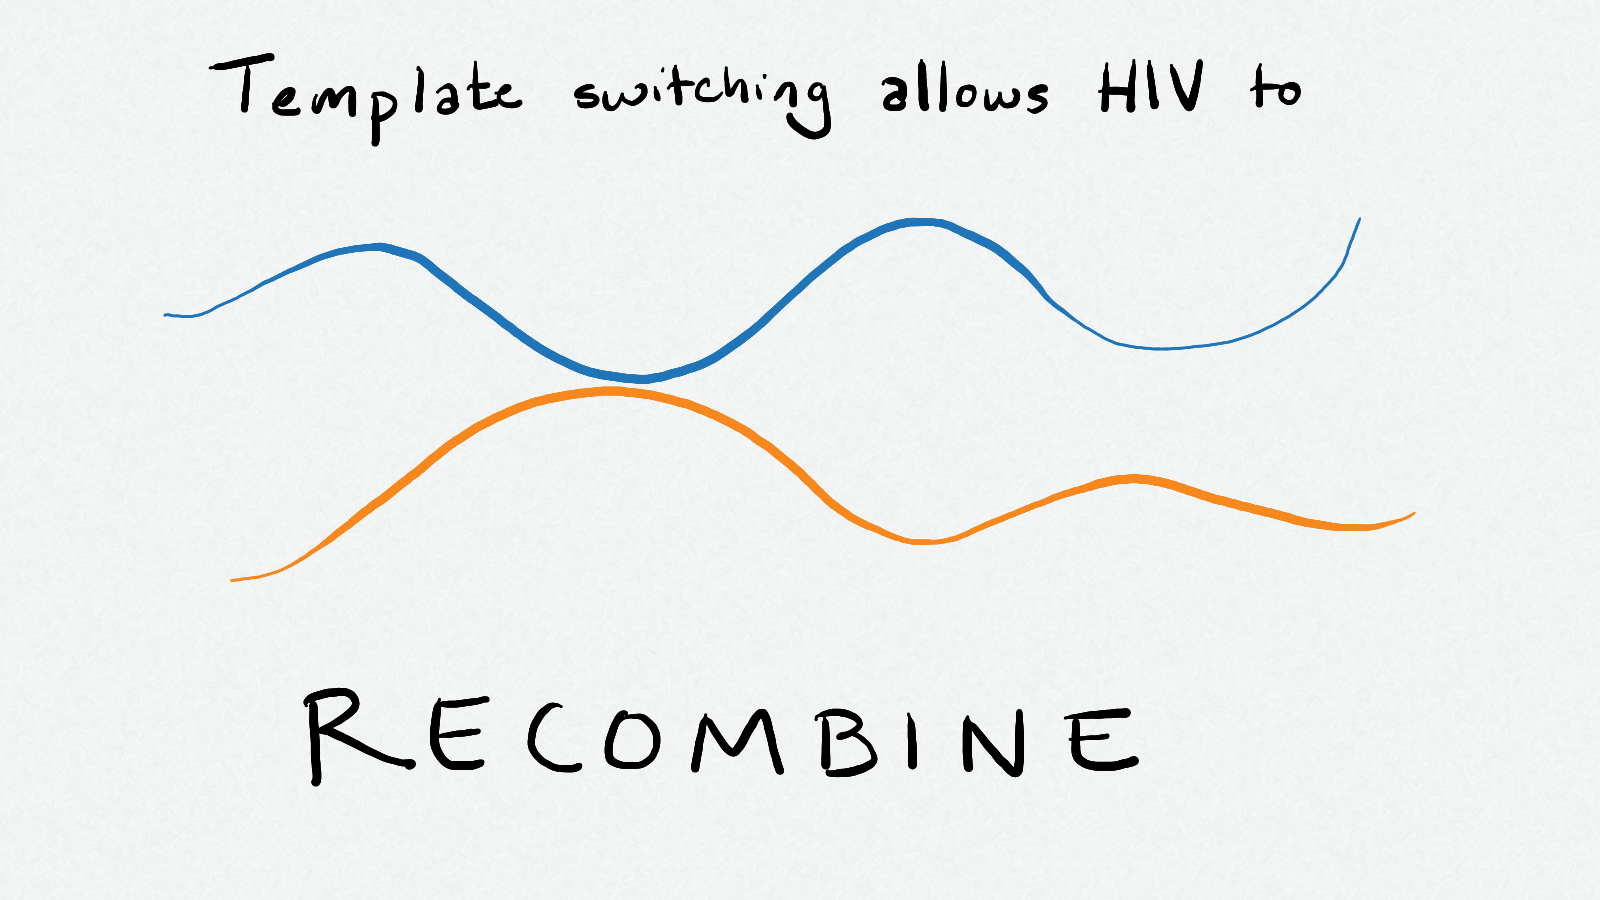 Template switching allows HIV to
RECOMBINE